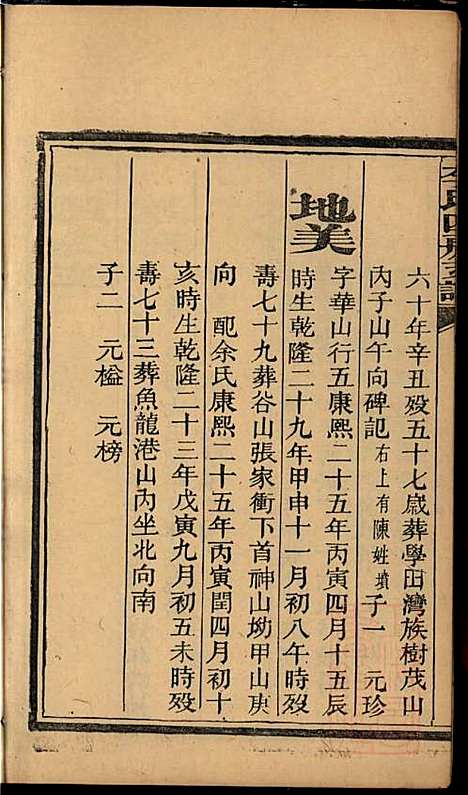 六十年辛丑殁五十七歲葬學田灣族樹茂山
丙子山午向碑記右上有陳姓墳子一 元珍
地美
字華山行五康熙二十五年丙寅四月十五辰
時生乾隆二十九年甲申十一月初八午時殁
壽七十九葬谷山張家衝下首神山坳甲山庚
向 配余氏康熙二十五年丙寅閏四月初十
亥時生乾隆二十三年戊寅九月初五未時殁
壽七十三葬魚龍港山內坐北向南
子二 元楹 元榜